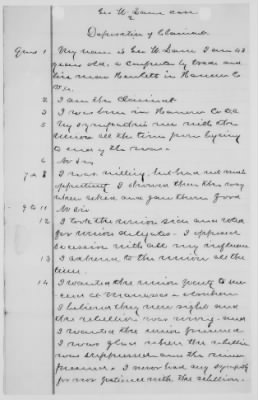 Geo W. Lawn case
2
Deposition of Claimant
Ques 1 My name is Geo W. Lawn I am 63
years old. a carpenter by trade and
live near Hewletts in Hanover Co
Va.
2 I am the Claimant
3 I was born in Hanover Co Va
5 My sympathies were with the
union all the time from beginning
to end of the war.
6 No Sir
7 & 8 I was willing but had not much
opportunity I showed them the way
when asked and gave them food
9 to 11 No Sir
12 I took the union side and voted
for union delegates. I opposed
secession with all my influence
13 I adhered to the union all the
time.
14 I wanted the union party to suc-
ceed at Manassas &
I believed they were right and
the rebellion was wrong and
I wanted the union
I was glad when the rebellion
was suppressed and the union
preserved. I never had any sympathy
nor patience with the rebellion.